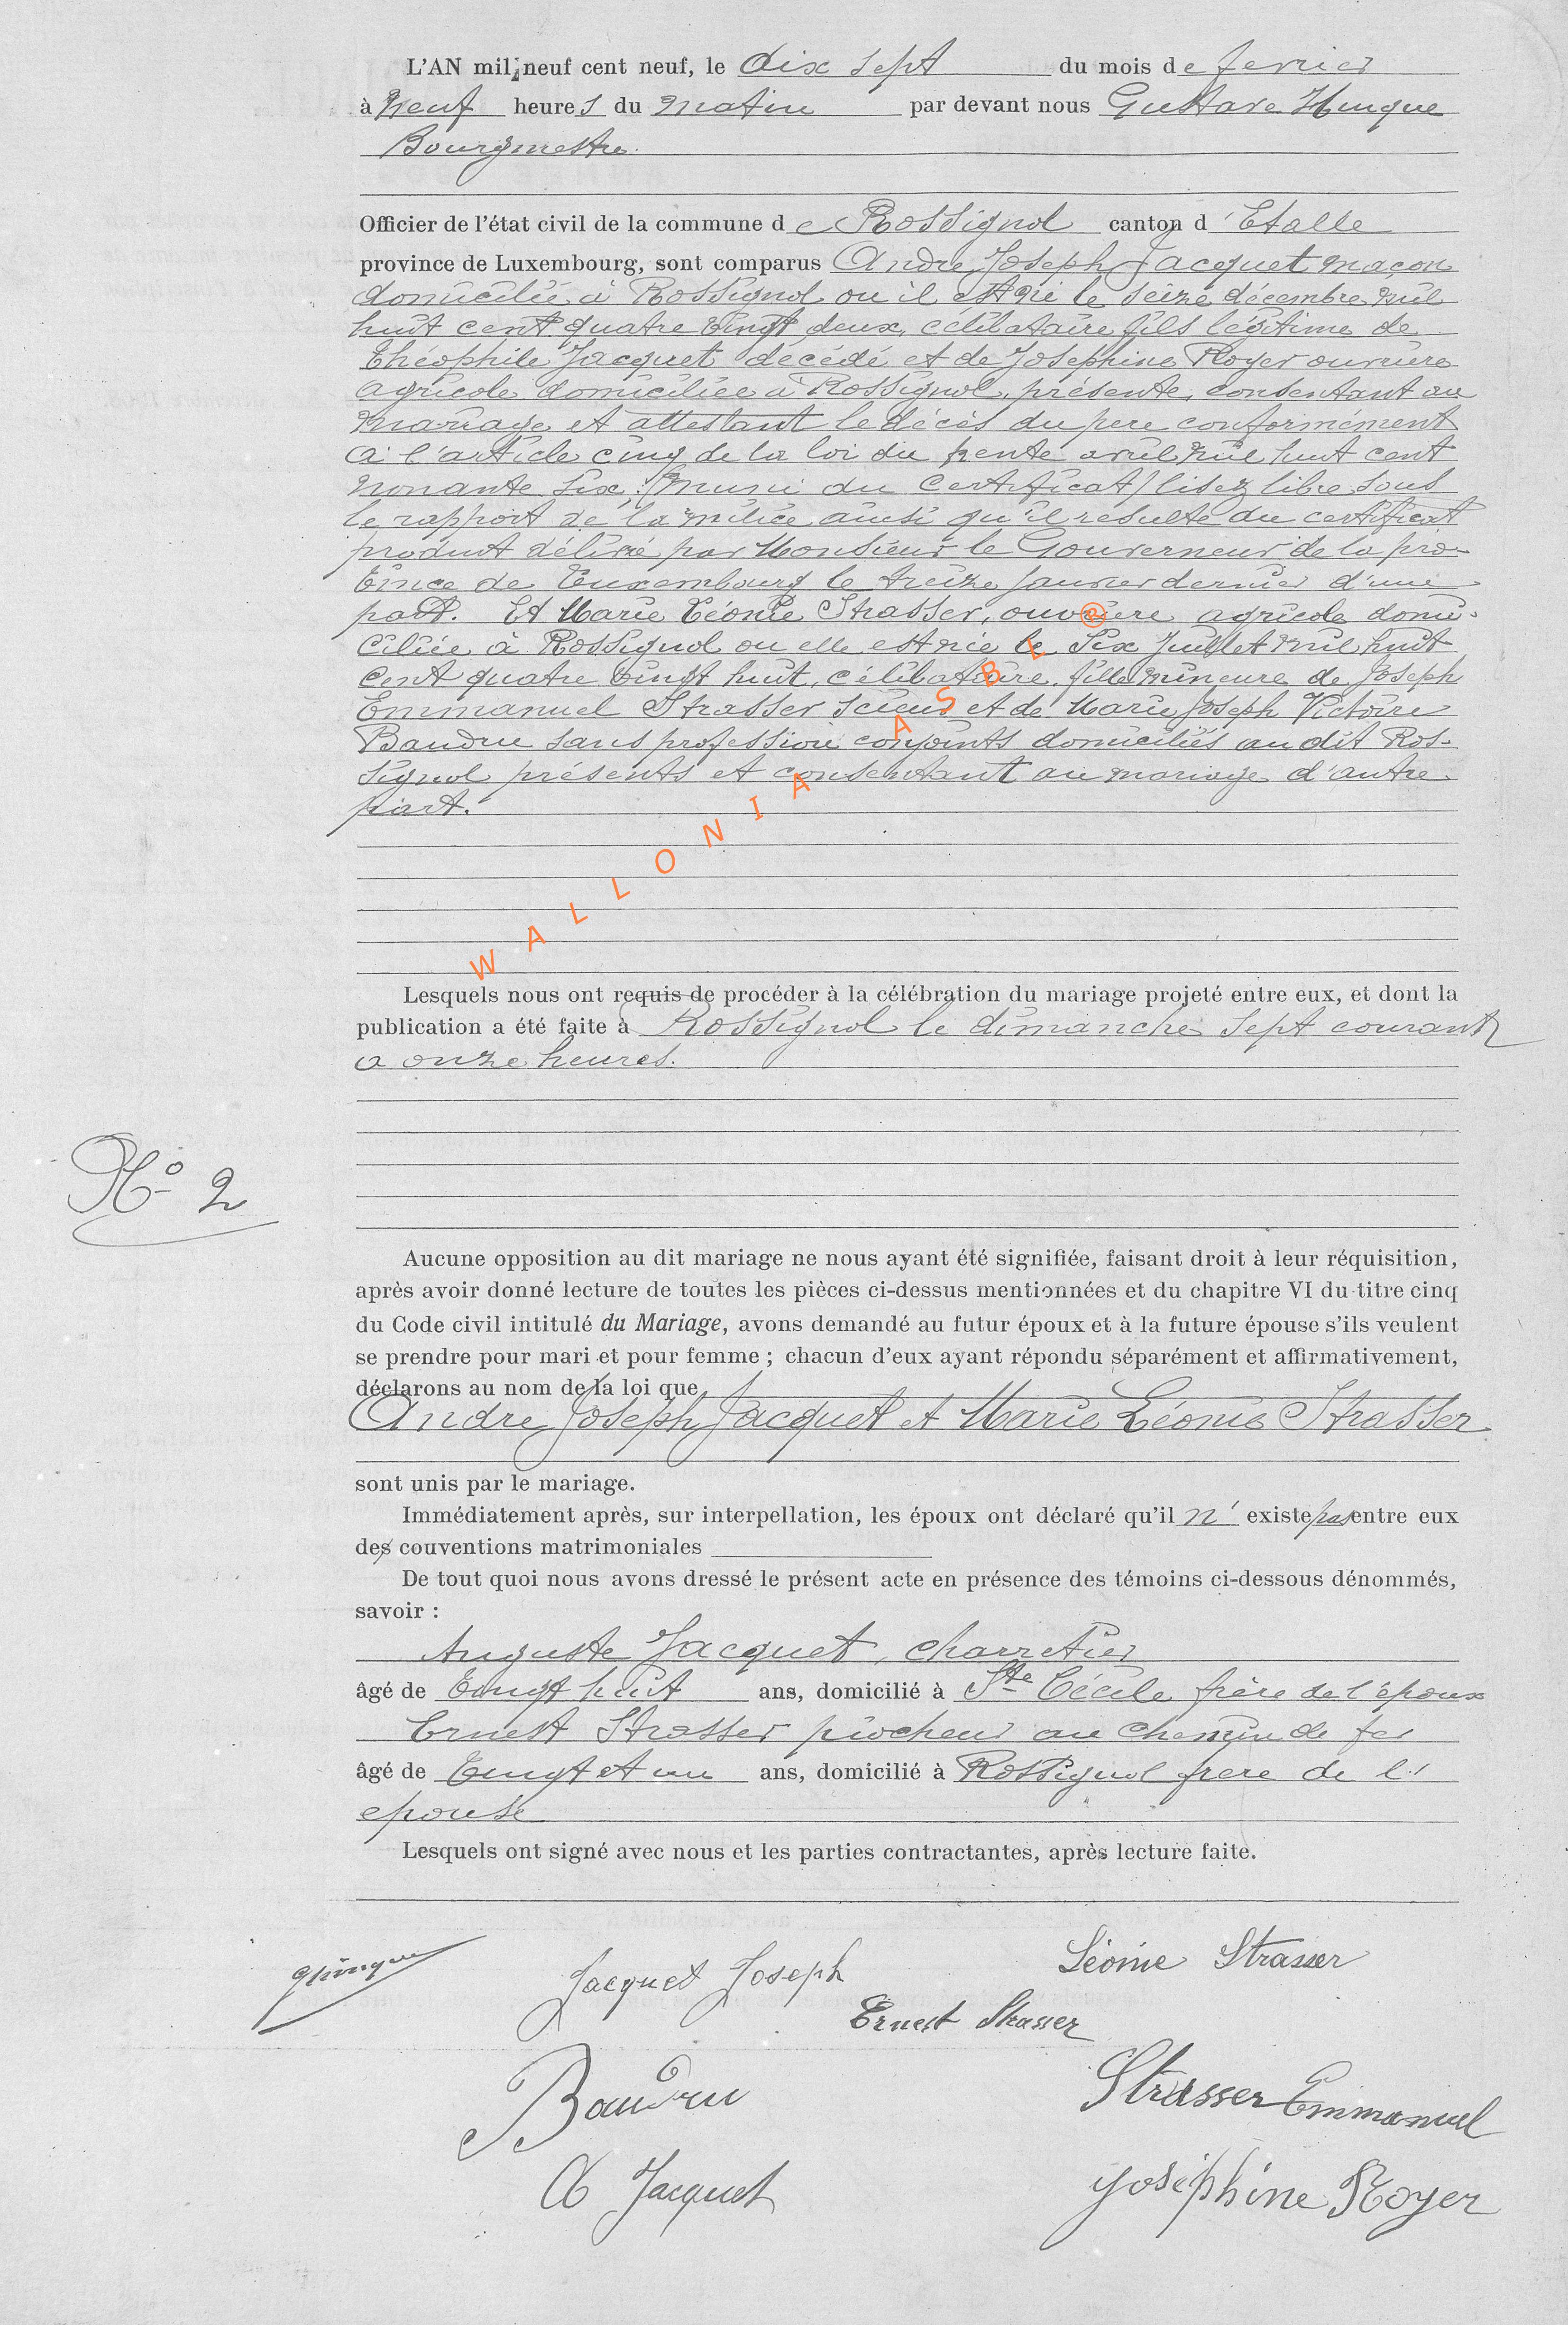 L'AN mil neuf cent neuf, le dix sept du mois de fevrier
à Neuf heures du matin par devant nous Gustave Hinque
Bourgmestre.
Officier de l'état civil de la commune de Rossignol canton d'Etalle
province de Luxembourg, sont comparus Andre Joseph Jacquet maçon
domicilié à Rossignol ou il est né le seize décembre mil
huit cent quatre vingt deux, célibataire fils légitime de
Théophile Jacquet décédé et de Josephine Royer ouvrière
agricole domiciliée à Rossignol, présente, consentant au
mariage et attestant le décès du pere conformément
à l'article cinq de la loi du trente avril mil huit cent
nonante six; (muni du certificat) lisez libre sous
le rapport de la milice ainsi qu'il résulte du certificat
produit délivré par Monsieur le Gouverneur de la pro-
vince de Luxembourg le treize janvier dernier d'une
part. Et Marie Léonie Strasser, ouvriere agricole domi-
ciliée à Rossignol ou elle est née le six juillet mil huit
cent quatre vingt huit, célibataire, fille mineure de Joseph
Emmanuel Strasser scieur et de Marie Joseph Victoire
Baudru sans profession conjoints domiciliés au dit Ros-
signol présents et consentant au mariage d'autre
part.
WALLONIA ASBL @
Lesquels nous ont requis de procéder à la célébration du mariage projeté entre eux, et dont la
publication a été faite à Rossignol le dimanche sept courant
a onze heures.
No 2
Aucune opposition au dit mariage ne nous ayant été signifiée, faisant droit à leur réquisition,
après avoir donné lecture de toutes les pièces ci-dessus mentionnées et du chapitre VI du titre cinq
du Code civil intitulé du Mariage, avons demandé au futur époux et à la future épouse s'ils veulent
se prendre pour mari et pour femme ; chacun d'eux ayant répondu séparément et affirmativement,
déclarons au nom de la loi que
Andre Joseph Jacquet et Marie Léonie Strasser
sont unis par le mariage.
Immédiatement après, sur interpellation, les époux ont déclaré qu'il n' existe pas entre eux
des couventions matrimoniales
De tout quoi nous avons dressé le présent acte en présence des témoins ci-dessous dénommés,
savoir :
Auguste Jacquet, charretier
âgé de vingt huit ans, domicilié à Ste Cécile frère de l'époux
Ernest Strasser piocheur au chemin de fer
âgé de vingt et un ans, domicilié à Rossignol frere de l'
epouse
Lesquels ont signé avec nous et les parties contractantes, après lecture faite.
Jacquet Joseph Léonie Strasser
Ernest Strasser
Baudru Strasser Emmanuel
A Jacquet Joséphine Royer